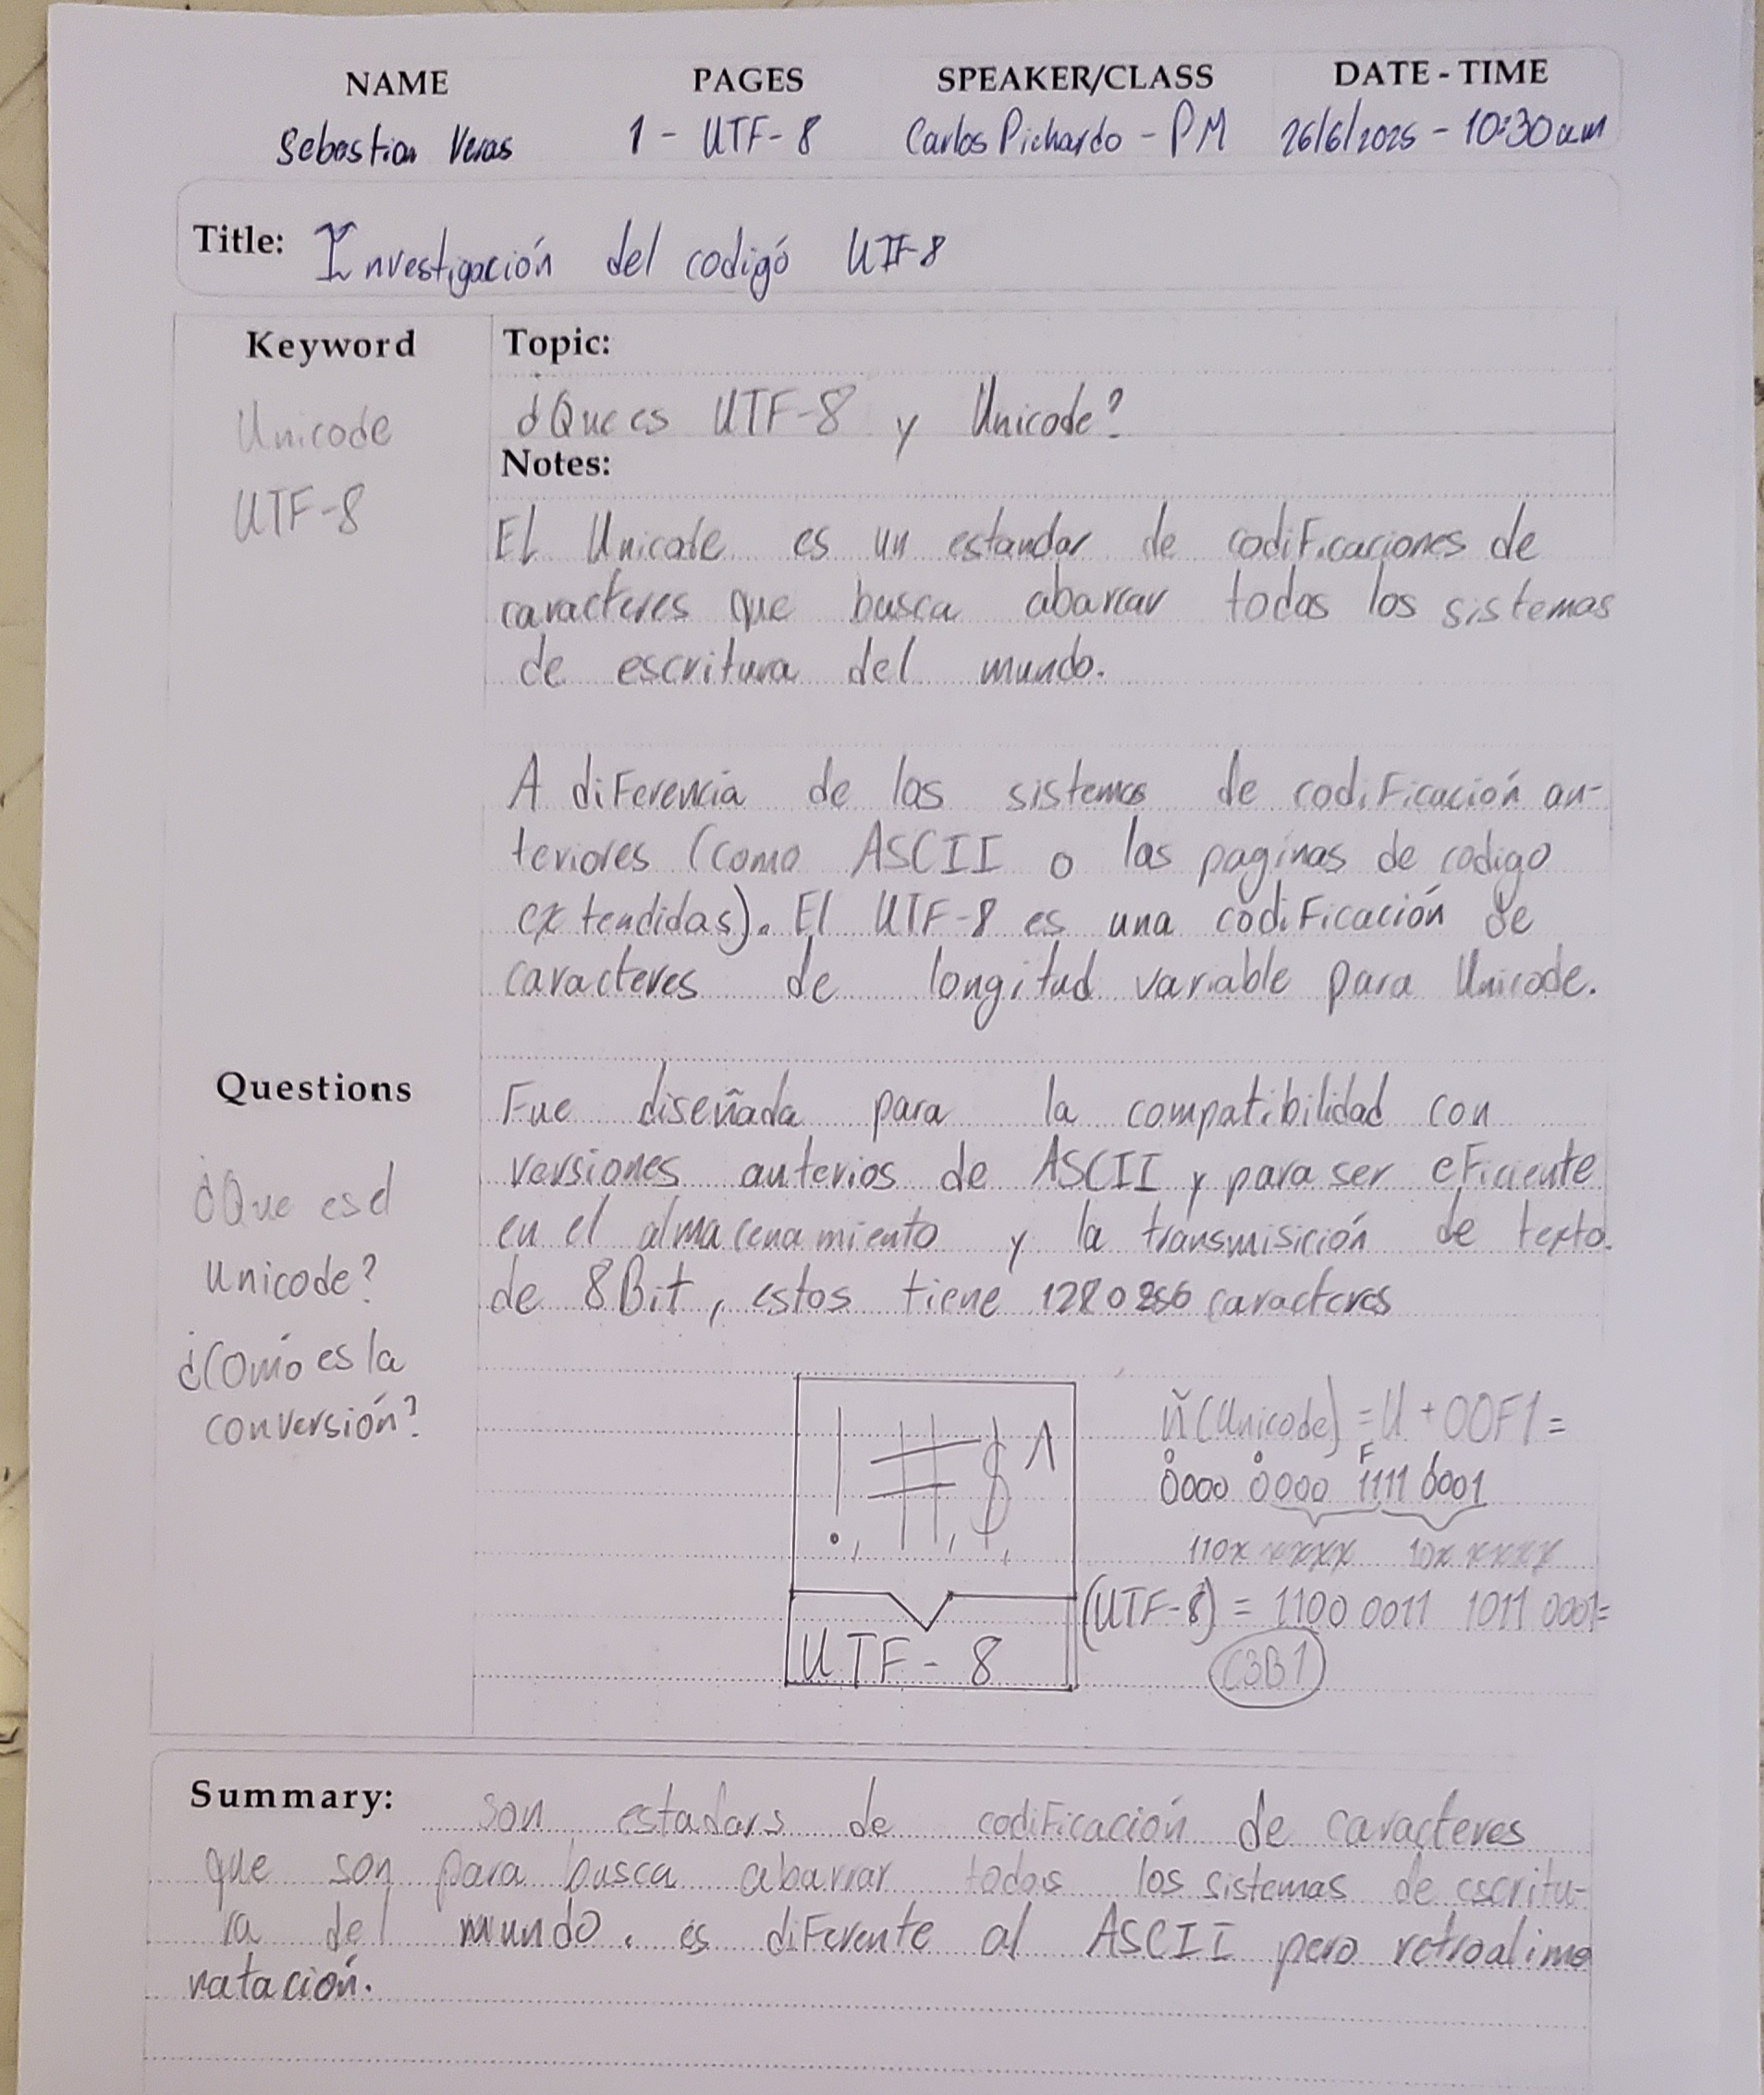 NAME PAGES SPEAKER/CLASS DATE - TIME
Sebastian Veras 1 - UTF-8 Carlos Pichardo - PM 26/6/2025 - 10:30 am
Title: Investigación del codigó UTF-8
Keyword
Unicode
UTF-8
Topic:
¿Que es UTF-8 y Unicode?
Notes:
El Unicode es un estandar de codificaciones de
caracteres que busca abarcar todos los sistemas
de escritura del mundo.
A diferencia de los sistemas de codificación an-
teriores (como ASCII o las paginas de codigo
extendidas). El UTF-8 es una codificación de
caracteres de longitud variable para Unicode.
Questions
¿Que es el
Unicode?
¿Comó es la
conversión?
Fue diseñada para la compatibilidad con
versiones anterios de ASCII y para ser eficiente
en el almacenamiento y la transmisición de texto.
de 8Bit, estos tiene 128 o 256 caracteres
!, #, $, ^
UTF-8
ñ (Unicode) = U+00F1 =
0 0 F
0000 0000 1111 0001
110x xxxx 10x xxxx
(UTF-8) = 1100 0011 1011 0001=
C3B1
Summary: son estadars de codificación de caracteres
que son para busca abarcar todos los sistemas de escritu-
ra del mundo. es diferente al ASCII pero retroalime
natación.